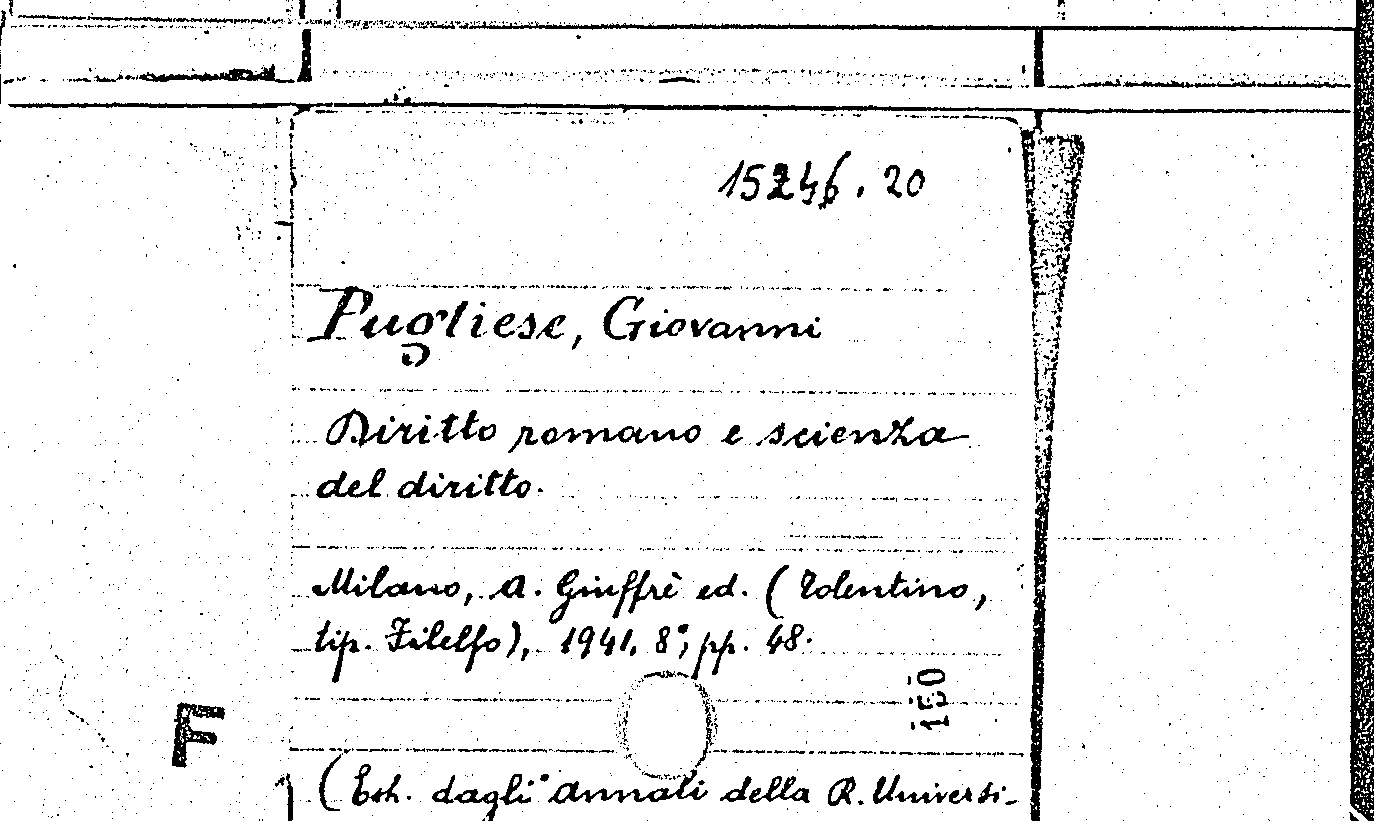 15246.20
Pugliese, Giovanni
Diritto romano e scienza
del diritto.
Milano, A. Giuffrè ed. (Tolentino,
tip. Filelfo), 1941. 8°, pp. 48.
150
F
(Estr. dagli "Annali della R. Universi-